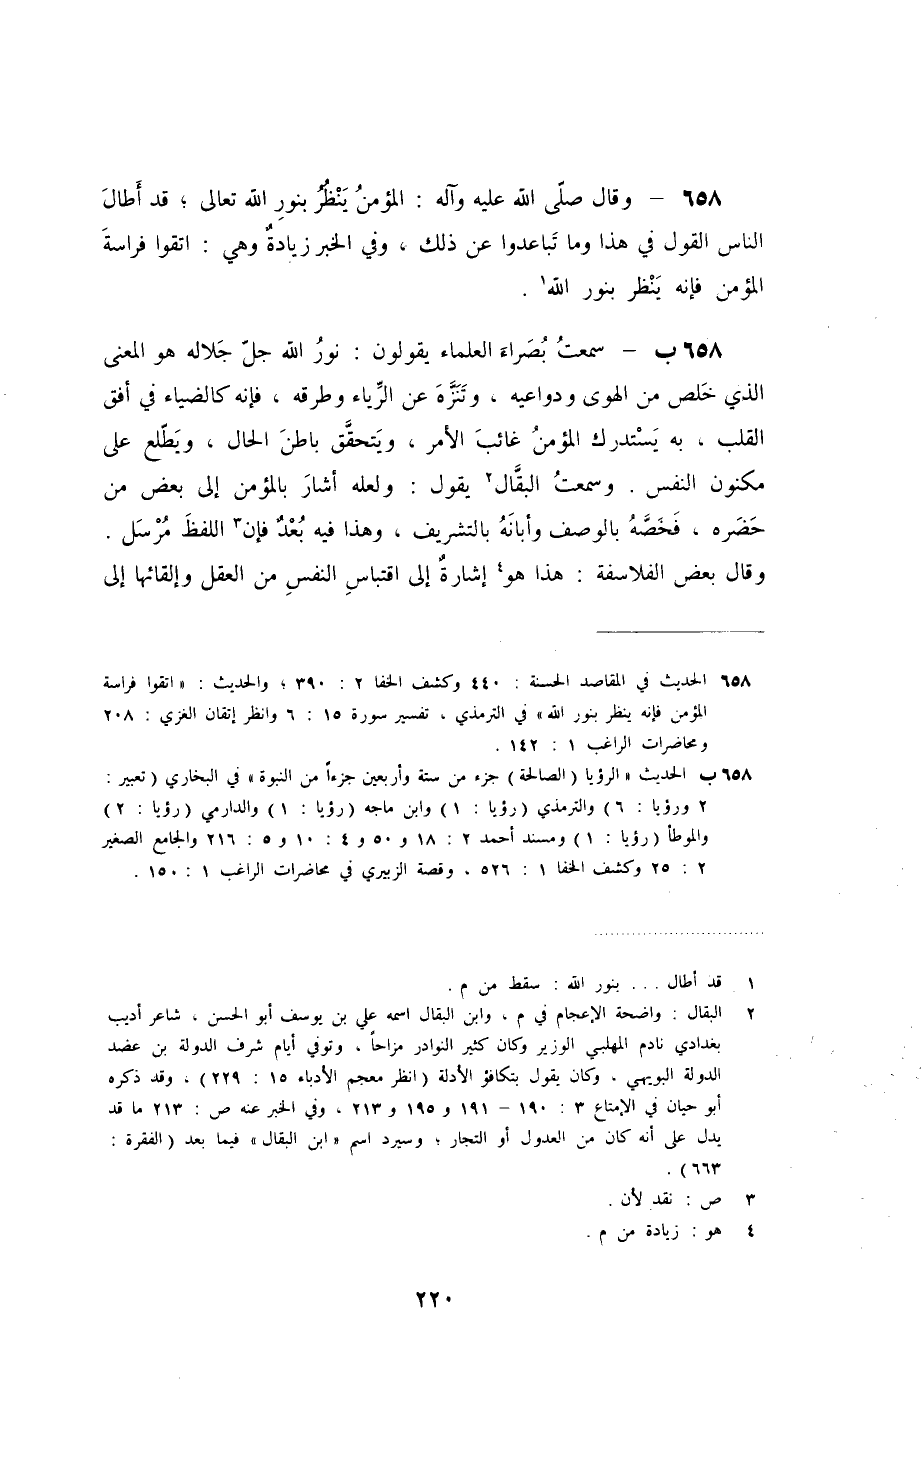 ٦٥٨ – وقال صلّى الله عليه وآله : المؤمنُ يَنْظُرُ بنورِ الله تعالى ؛ قد أَطالَ
الناس القول في هذا وما تَباعدوا عن ذلك ، وفي الخبر زيادةٌ وهي : اتقوا فراسةَ
المؤمن فإنه يَنْظر بنور الله١ .
٦٥٨ب – سمعتُ بُصَراءَ العلماء يقولون : نورُ الله جلّ جَلاله هو المعنى
الذي خَلَص من الهوى ودواعيه ، وتَنَزَّهَ عن الرِّياء وطرقه ، فإنه كالضياء في أفق
القلب ، به يَسْتدرك المؤمنُ غائبَ الأمر ، ويَتحقَّق باطنَ الحال ، ويَطّلع على
مكنون النفس . وسمعتُ البقَّال٢ يقول : ولعله أشارَ بالمؤمن إلى بعض من
حَضَره ، فَخَصَّهُ بالوصف وأبانَهُ بالتشريف ، وهذا فيه بُعْدٌ فإن٣ اللفظَ مُرْسَل .
وقال بعض الفلاسفة : هذا هو٤ إشارةٌ إلى اقتباسِ النفسِ من العقل وإلقائها إلى
٦٥٨ الحديث في المقاصد الحسنة : ٤٤٠ وكشف الخفا ٢ : ٣٩٠ ؛ والحديث : « اتقوا فراسة
المؤمن فإنه ينظر بنور الله» في الترمذي ، تفسير سورة ١٥ : ٦ وانظر إتقان الغزي : ٢٠٨
ومحاضرات الراغب ١ : ١٤٢ .
٦٥٨ب الحديث « الرؤيا (الصالحة) جزء من ستة وأربعين جزءاً من النبوة» في البخاري ( تعبير :
٢ ورؤيا : ٦) والترمذي (رؤيا : ١) وابن ماجه (رؤيا : ١) والدارمي (رؤيا : ٢)
والموطأ (رؤيا : ١) ومسند أحمد ٢ : ١٨ و ٥٠ و ٤ : ١٠ و ٥ : ٢١٦ والجامع الصغير
٢ : ٢٥ وكشف الخفا ١ : ٥٢٦ ، وقصة الزبيري في محاضرات الراغب ١ : ١٥٠ .
١ قد أطال ... بنور الله : سقط من م .
٢ البقال : واضحة الإعجام في م ، وابن البقال اسمه علي بن يوسف أبو الحسن ، شاعر أديب
بغدادي نادم المهلبي الوزير وكان كثير النوادر مزاحاً ، وتوفي أيام شرف الدولة بن عضد
الدولة البويهي ، وكان يقول بتكافؤ الأدلة (انظر معجم الأدباء ١٥ : ٢٢٩) ، وقد ذكره
أبو حيان في الإمتاع ٣ : ١٩٠ – ١٩١ و ١٩٥ و ٢١٣ ، وفي الخبر عنه ص : ٢١٣ ما قد
يدل على أنه كان من العدول أو التجار ؛ وسيرد اسم « ابن البقال» فيما بعد (الفقرة :
٦٦٣) .
٣ ص : نقد لأن .
٤ هو : زيادة من م .
٢٢٠